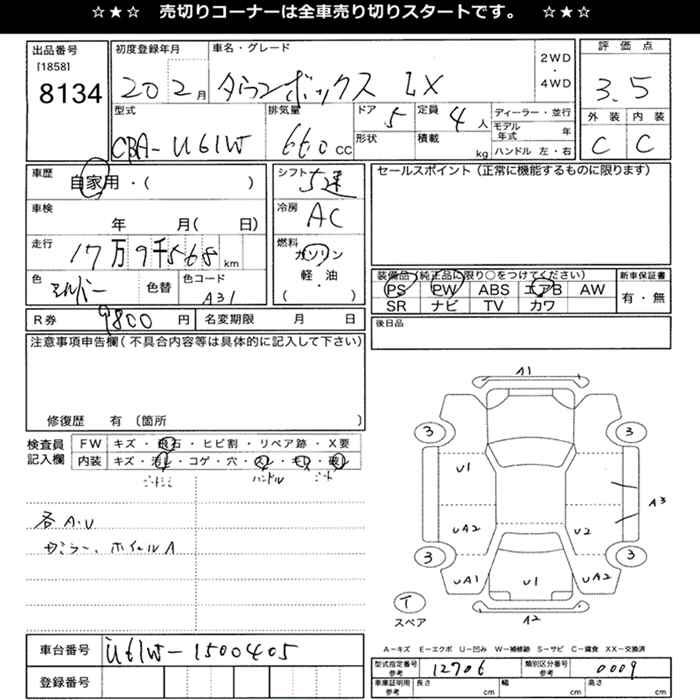 ☆★☆ 売切りコーナーは全車売り切りスタートです。 ☆★☆
出品番号
[1858]
8134
初度登録年月
20 2 月
車名・グレード
タウンボックス LX
2WD
・
4WD
評価点
3.5
外装 内装
C C
型式
CBA-U61W
排気量
660 cc
ドア
5
定員
4 人
形状
積載
kg
ディーラー・並行
モデル年式 年
ハンドル 左・右
車歴
自家用・( )
車検
年 月( 日)
走行
17万9千568 km
色
シルバー
色替
色コード
A31
シフト
5速
冷房
AC
燃料
ガソリン
軽・油
( )
セールスポイント(正常に機能するものに限ります)
装備品(純正品に限り○をつけてください)
PS PW ABS エアB AW
SR ナビ TV カワ
新車保証書
有・無
R券 9800 円
名変期限 月 日
後日品
注意事項申告欄(不具合内容等は具体的に記入して下さい)
修復歴 有 〔箇所 〕
検査員
記入欄
FW キズ・飛石・ヒビ割・リペア跡・X要
内装 キズ・汚レ・コゲ・穴・スレ・キレ・破レ
ハンドル シート
各A・U
ホイールA
A1
3 3
U1
A3
UA2 U2
3 3
UA1 U1 UA2
T
スペア
A2
A-キズ E-エクボ U-凹み W-補修跡 S-サビ C-腐食 XX-交換済
車台番号 U61W-1500405
登録番号
型式指定番号
参考
12706
類別区分番号
参考
0009
車庫証明用
参考
長さ cm 幅 cm 高さ cm